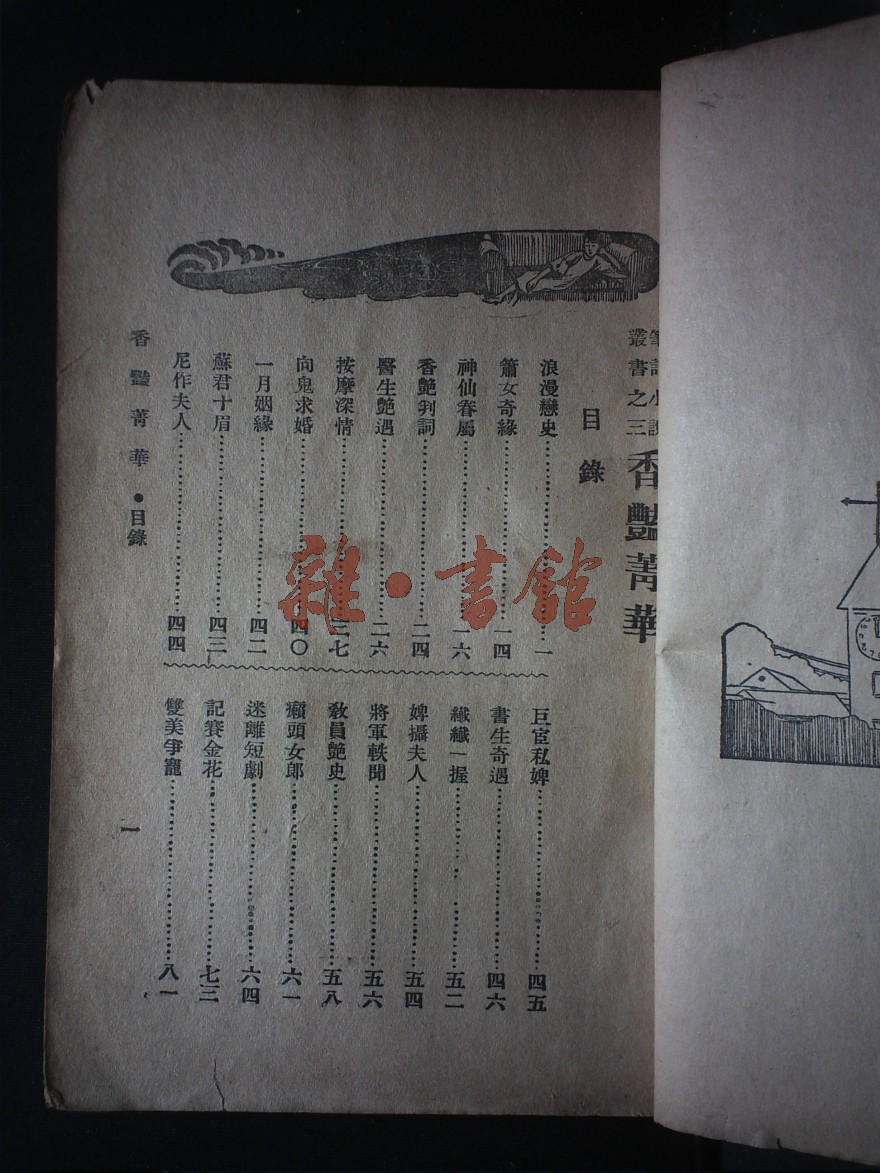 叢書之三
香艷菁華
目錄
浪漫戀史⋯⋯一
簫女奇緣⋯⋯一四
神仙眷屬⋯⋯一六
香艷判詞⋯⋯二四
醫生艷遇⋯⋯二六
按摩深情⋯⋯三七
向鬼求婚⋯⋯四〇
一月姻緣⋯⋯四二
蘇君十眉⋯⋯四三
尼作夫人⋯⋯四四
巨宦私婢⋯⋯四五
書生奇遇⋯⋯四六
纖纖一握⋯⋯五二
婢攝夫人⋯⋯五四
將軍軼聞⋯⋯五六
教員艷史⋯⋯五八
癩頭女郎⋯⋯六一
迷離短劇⋯⋯六四
記賽金花⋯⋯七三
雙美爭寵⋯⋯八一
香豔菁華●目錄
一
雜·書館